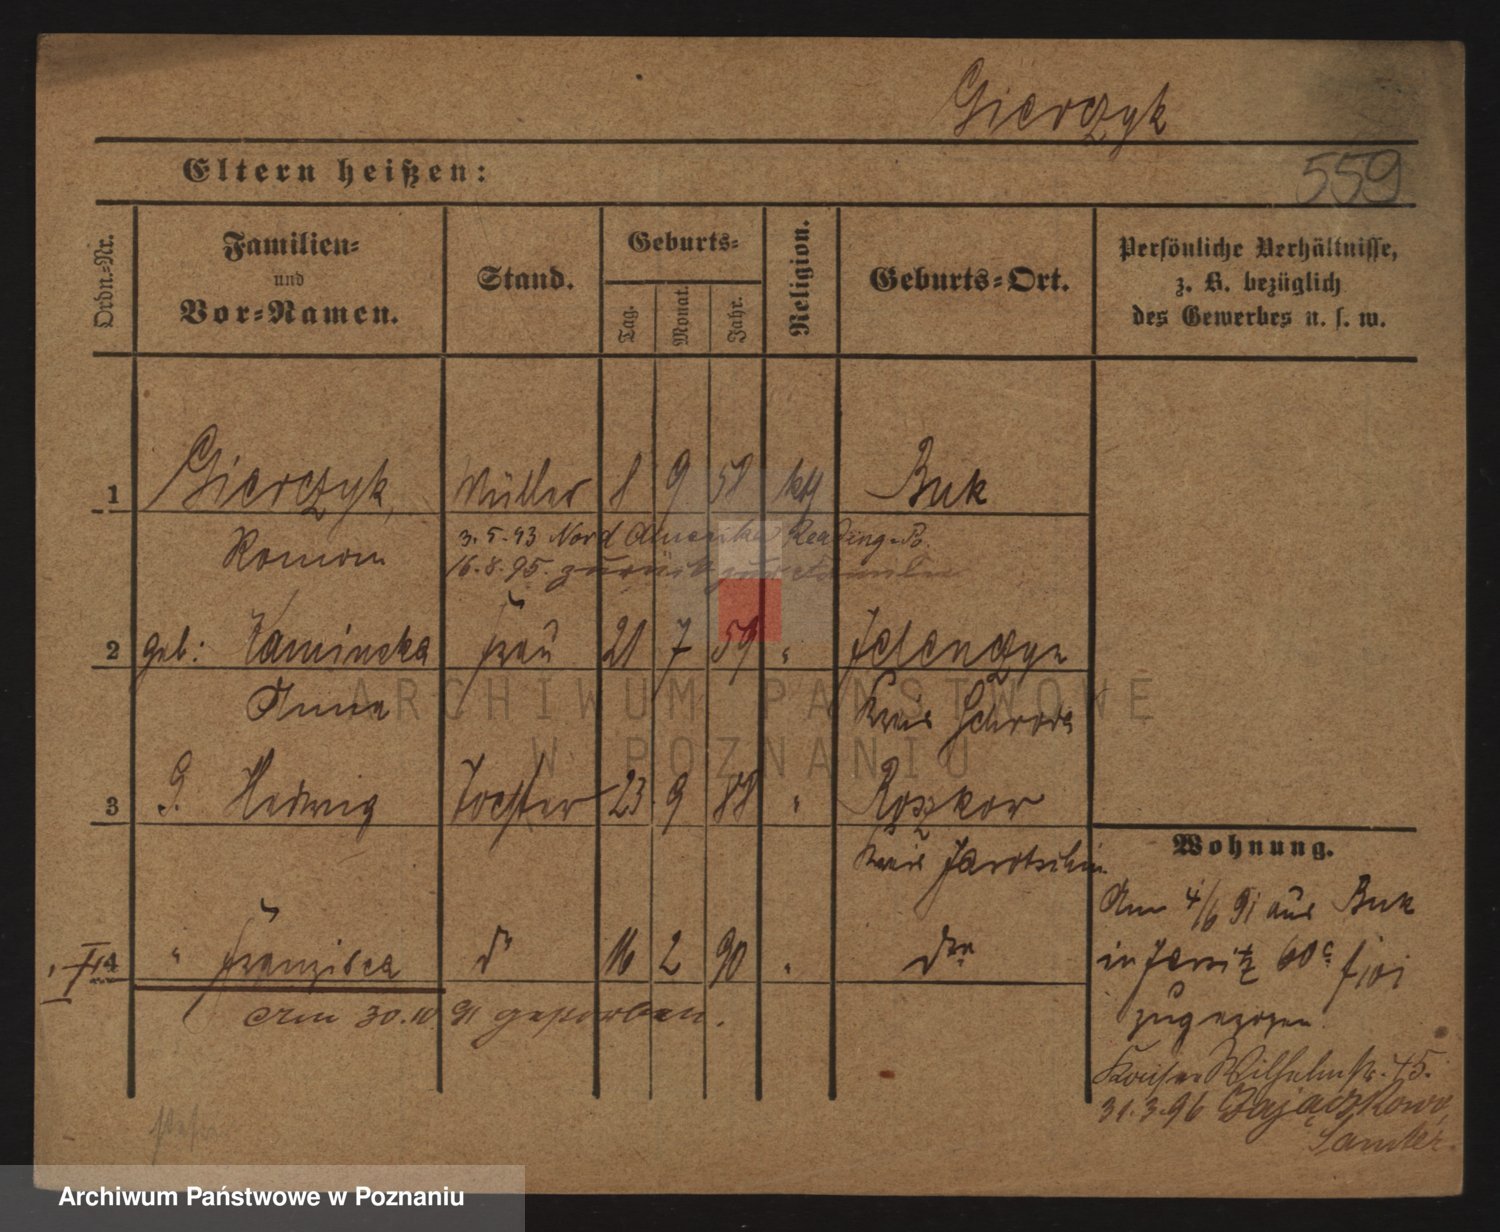 Gierczyk
559
Eltern heißen:
Ordn.=Nr.
Familien=
und
Vor=Namen.
Stand.
Geburts=
Tag.
Monat.
Jahr.
Religion.
Geburts=Ort.
Persönliche Verhältnisse,
z. B. bezüglich
des Gewerbes u. s. w.
1 Gierczyk, Müller 8 9 58 kth Buk
Roman
3.5.93 Nord Amerika Reading
16.8.95. zurück zur Familie
2 geb: Kaminska Frau 21 7 59 " Jelenczyn
Anna Kreis Schroda
3 G. Hedwig Tochter 23 9 88 " Roszkow
Kreis Jarotschin
4 " Franziska do 16 2 90 "
Am 30.10 91 gestorben.
Wohnung.
Am 4/6 91 aus Buk
in Jersitz 60c
zugezogen.
Kaiser Wilhelmstr. 45.
31.3.96 Zajączkowo,
Samter.
ARCHIWUM PAŃSTWOWE
W POZNANIU
Archiwum Państwowe w Poznaniu